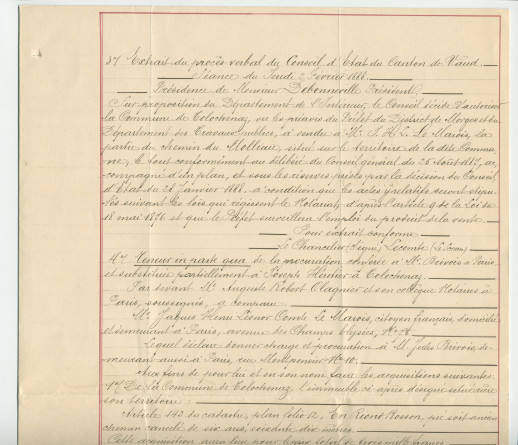 3º/ Extrait du procès verbal du Conseil d'Etat du Canton de Vaud.
Séance du Jeudi 2 Février 1888.
Présidence de Monsieur Debonneville Président.
Sur proposition du Département de l'Intérieur, le Conseil décide d'autoriser
la Commune de Tolochenaz, vu les préavis du Préfet du District de Morges et du
Département des Travaux publics, à vendre à Mr J. H. L. Le Marois, la
partie du chemin du Molliau, situé sur le territoire de la dite Commu-
ne, le tout conformément au délibéré du Conseil général du 25 Août 1887, ac-
compagné d'un plan, et sous les réserves prises par la décision du Conseil
d'Etat du 28 Janvier 1888, à condition que les actes soient stipu-
lés suivant les lois qui régissent le Notariat, d'après l'article 9 de la Loi du
18 mai 1876 et que le Préfet surveillera l'emploi du produit de la vente.
Pour extrait conforme
Le Chancelier (signé) Lecomte
4º/ Teneur in parte qua de la procuration conférée à Mr Brivois à Paris
et substituée partiellement à Joseph à Tolochenaz.
Par devant Me Auguste Robert Clagnier et son collègue Notaires à
Paris, soussignés, a comparu
Mr Jacques Henri Léonor Comte Le Marois, citoyen français, domicilié
et demeurant à Paris, avenue des Champs Elysées,
Lequel déclare donner charge et procuration à M. Jules Brivois, de-
meurant aussi à Paris, rue Montpensier Nº 10.
Aux fins de pour lui et en son nom faire les acquisitions suivantes:
1º/ De la Commune de Tolochenaz, l'immeuble ci-après désigné situé rière
son territoire:
Article 143 du cadastre, plan folio 12, En Rionz Bosson, pré soit ancien
chemin cancelé de six ares, soixante dix mètres.
Cette acquisition aura lieu pour le prix total de